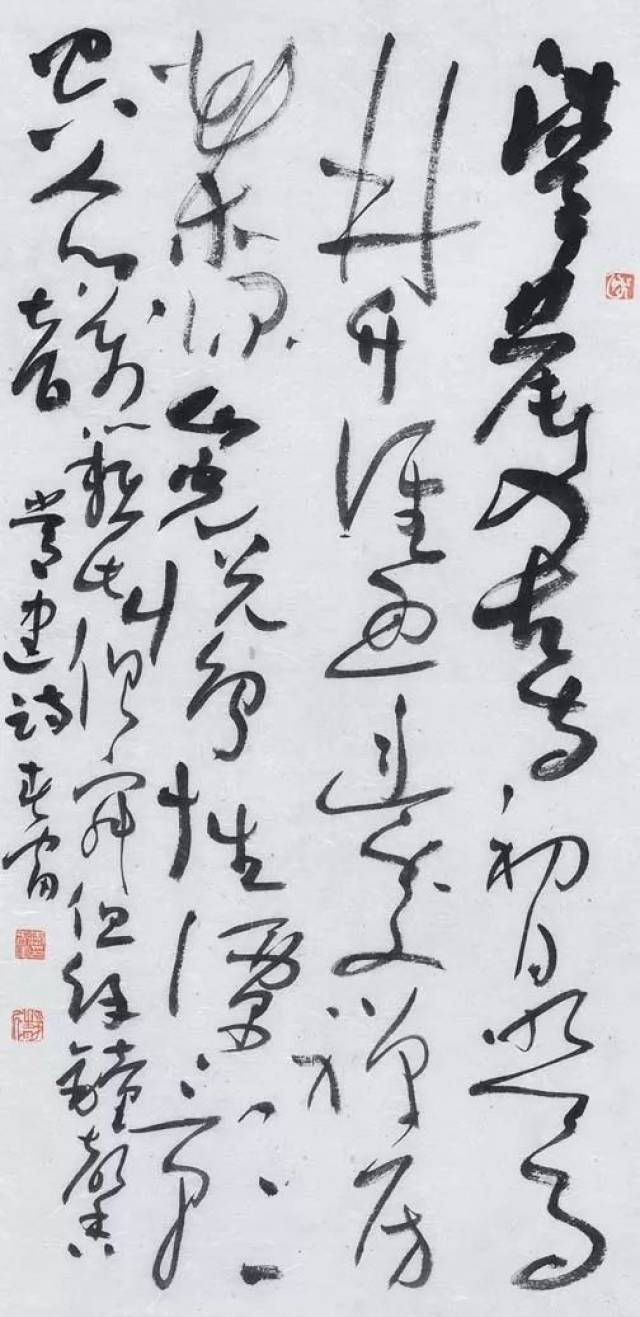 清晨入古寺初日照高
林徑通幽處禪房
花木深山光悅鳥性潭影
空人心萬籟此俱寂但餘鐘磬
音 常建詩